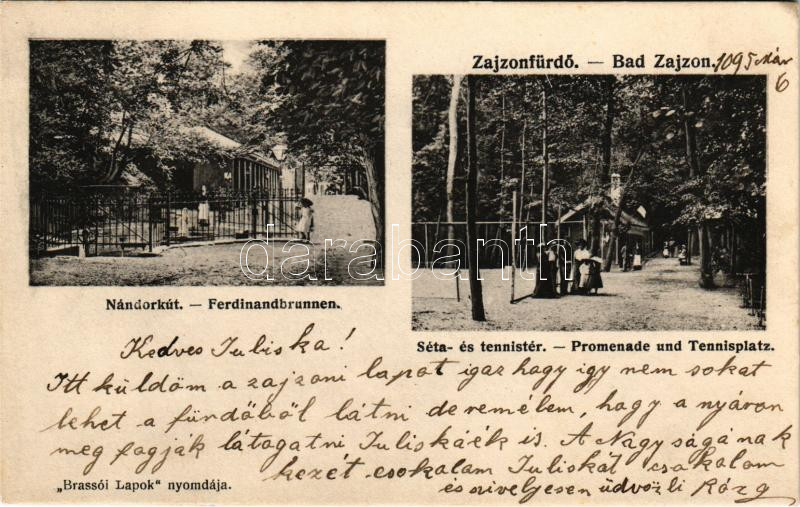 Zajzonfürdő. — Bad Zajzon.
Nándorkút. — Ferdinandbrunnen.
Séta- és tennistér. — Promenade und Tennisplatz.
Kedves Juliska!
Itt küldöm a zajzoni lapot igaz hogy igy nem sokat
lehet a fürdőből látni de remélem, hogy a nyáron
meg fogják látogatni Juliskáék is. A Nagyságának
kezét csokolam Juliskát csokolam
és szivelyesen üdvözli
„Brassói Lapok" nyomdája.
darabanth